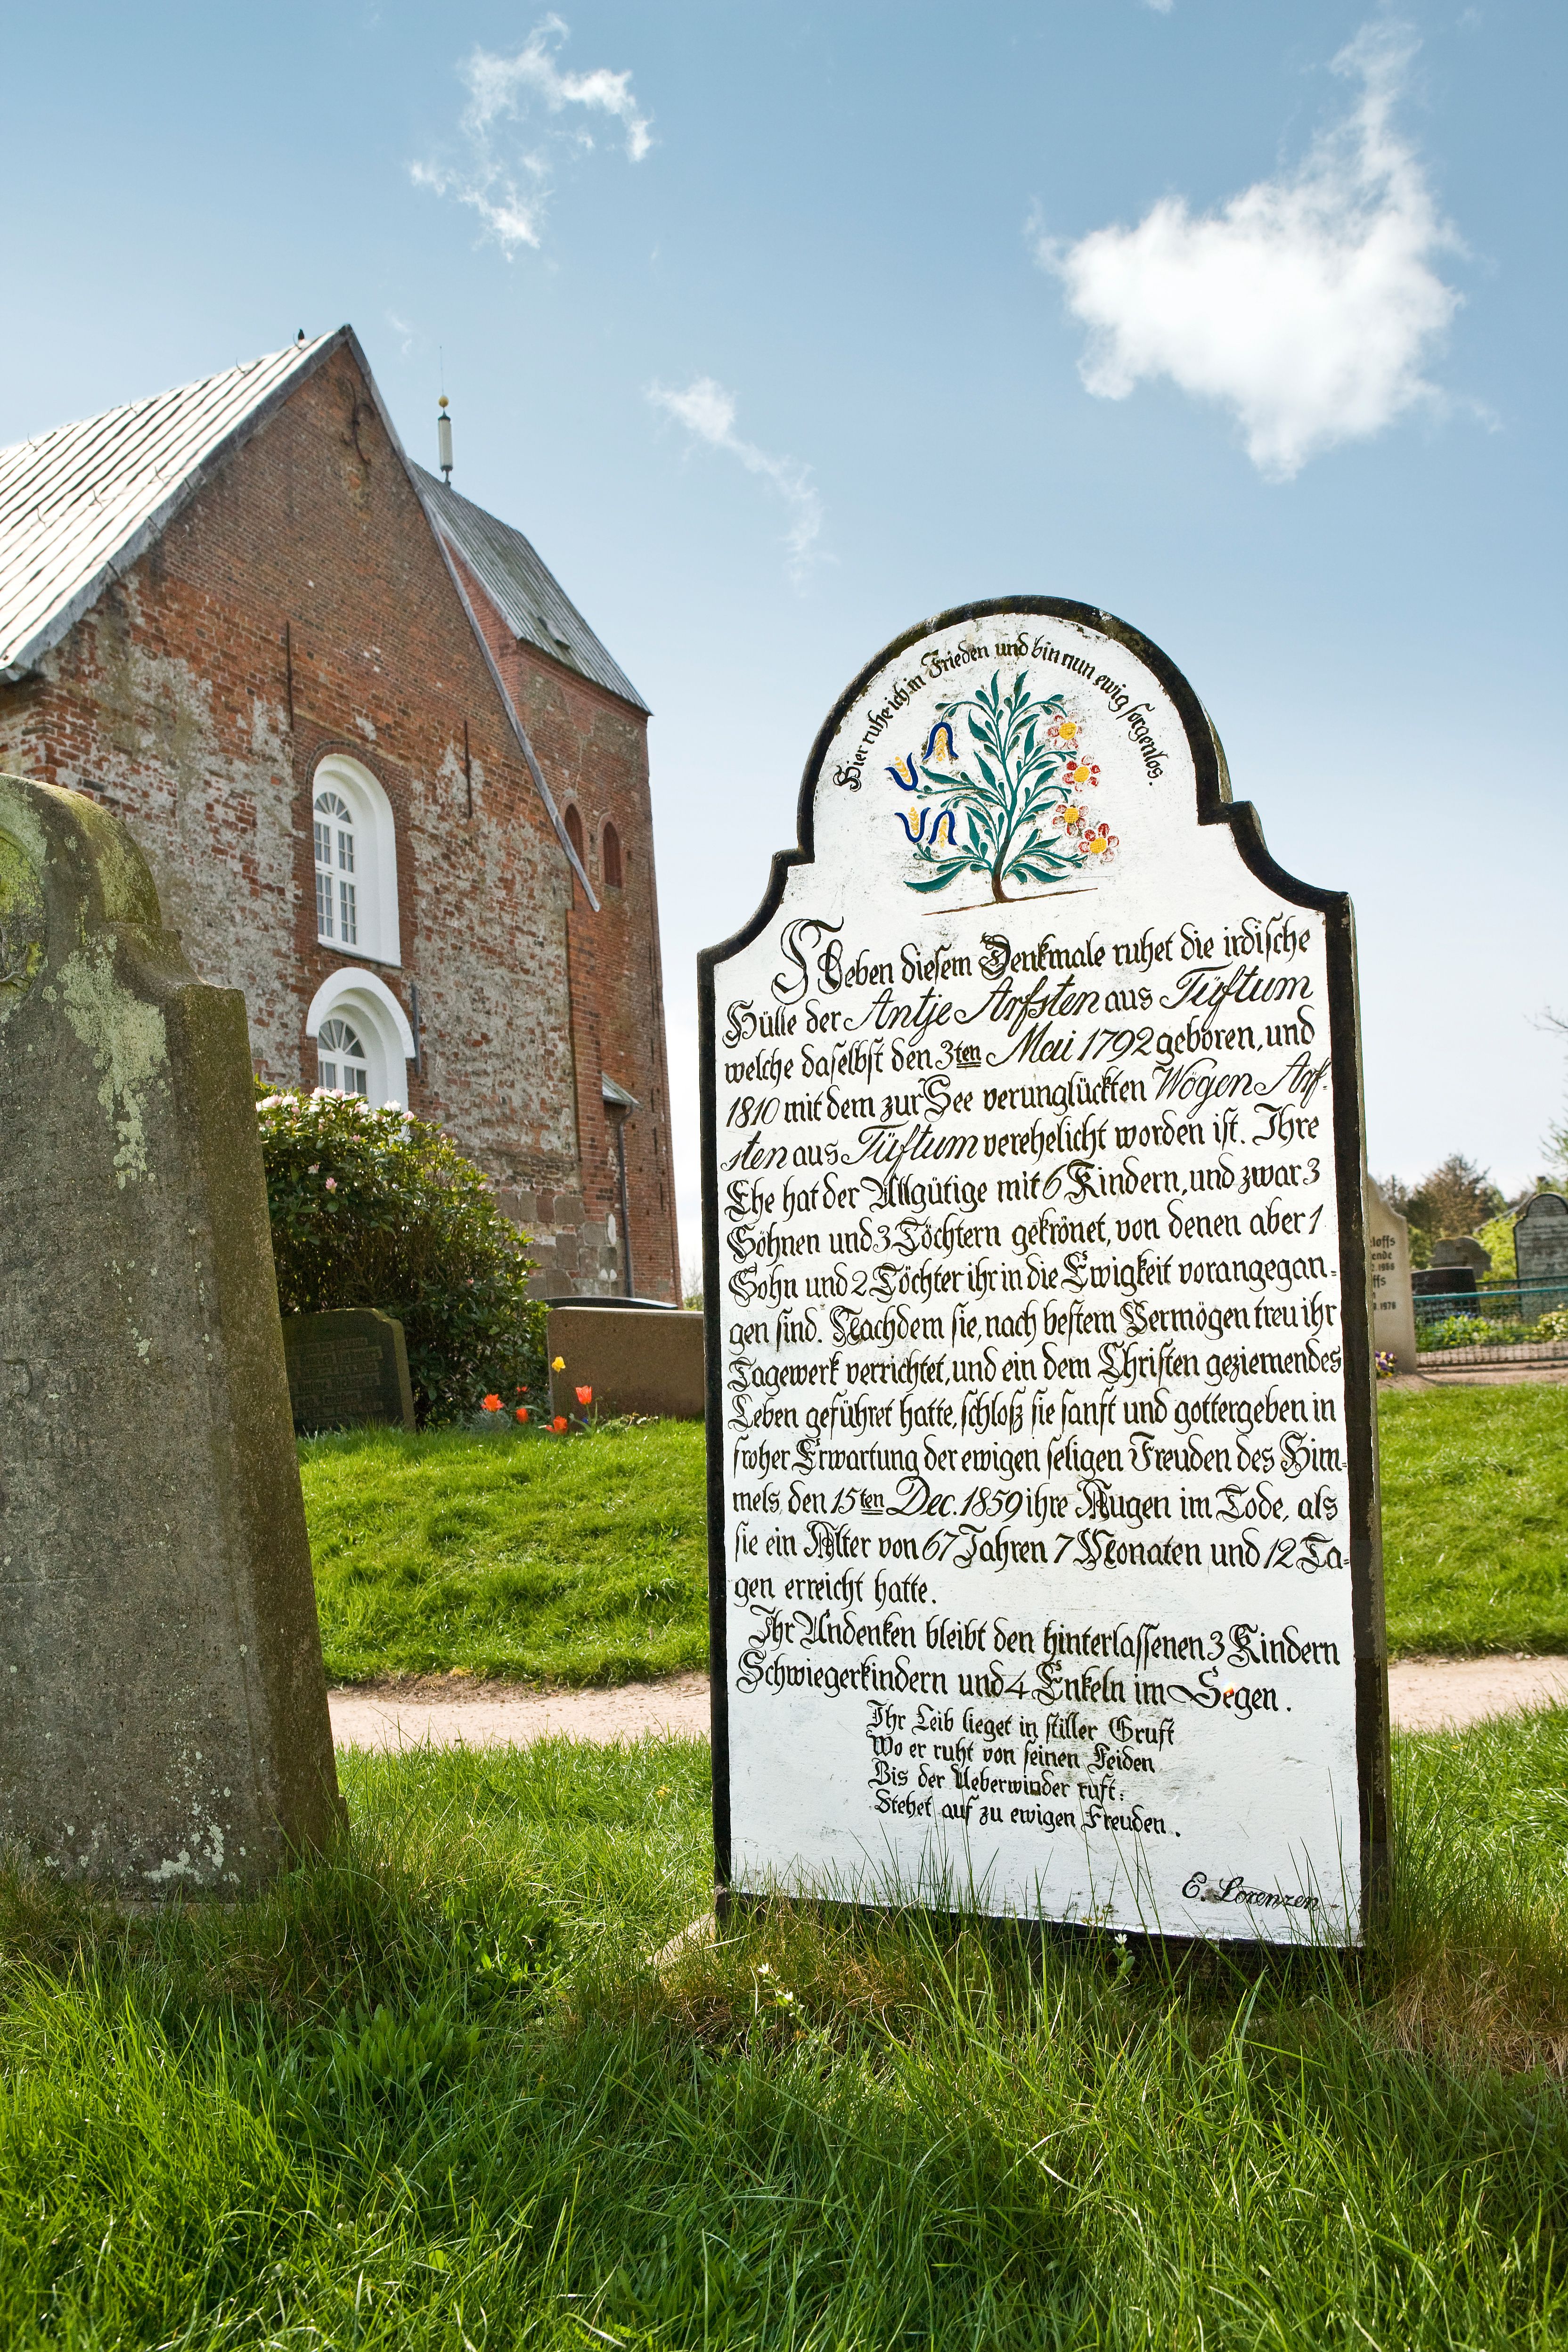 Hier ruhe ich in Frieden und bin nun ewig sorgenlos.
Neben diesem Denkmale ruhet die irdische
Hülle der Antje Arfsten aus Tüftum
welche daselbst den 3ten Mai 1792 geboren, und
1810 mit dem zur See verunglückten Wögen Arf-
sten aus Tüftum verehelicht worden ist. Ihre
Ehe hat der Allgütige mit 6 Kindern, und zwar 3
Söhnen und 3 Töchtern gekrönet, von denen aber 1
Sohn und 2 Töchter ihr in die Ewigkeit vorangegan-
gen sind. Nachdem sie, nach bestem Vermögen treu ihr
Tagewerk verrichtet, und ein dem Christen geziemendes
Leben geführet hatte, schloß sie sanft und gottergeben in
froher Erwartung der ewigen seligen Freuden des Him-
mels, den 15ten Dec. 1859 ihre Augen im Tode, als
sie ein Alter von 67 Jahren 7 Monaten und 12 Ta-
gen erreicht hatte.
Ihr Andenken bleibt den hinterlassenen 3 Kindern
Schwiegerkindern und 4 Enkeln im Segen.
Ihr Leib lieget in stiller Gruft
Wo er ruht von seinen Leiden
Bis der Ueberwinder ruft:
Stehet auf zu ewigen Freuden.
E. Lorenzen